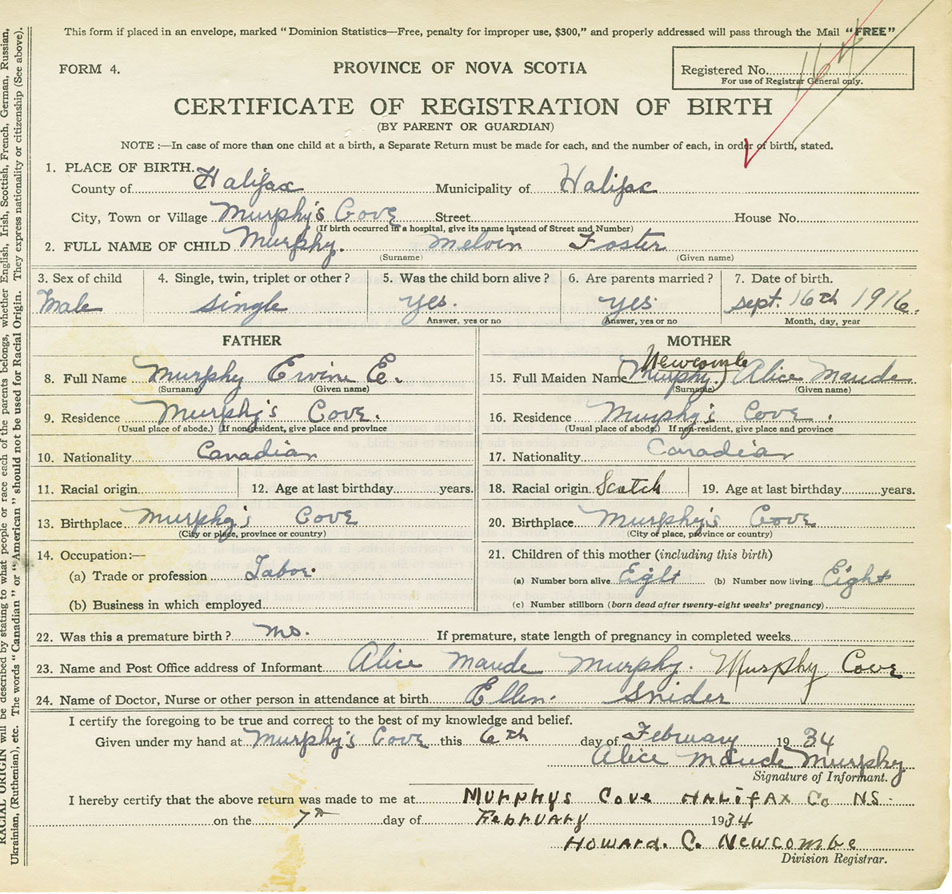 This form if placed in an envelope, marked "Dominion Statistics—Free, penalty for improper use, $300," and properly addressed will pass through the Mail "FREE"
FORM 4.
PROVINCE OF NOVA SCOTIA
Registered No.
For use of Registrar General only.
CERTIFICATE OF REGISTRATION OF BIRTH
(BY PARENT OR GUARDIAN)
NOTE :—In case of more than one child at a birth, a Separate Return must be made for each, and the number of each, in order of birth, stated.
1. PLACE OF BIRTH.
County of Halifax Municipality of Halifax
City, Town or Village Murphy's Cove Street House No.
(If birth occurred in a hospital, give its name instead of Street and Number)
2. FULL NAME OF CHILD Murphy. Melvin Foster
(Surname) (Given name)
3. Sex of child 4. Single, twin, triplet or other? 5. Was the child born alive? 6. Are parents married? 7. Date of birth.
Male single yes. yes. sept. 16th 1916.
Answer, yes or no Answer, yes or no Month, day, year
FATHER
8. Full Name Murphy Ervine E.
(Surname) (Given name)
9. Residence Murphy's Cove.
(Usual place of abode.) If non-resident, give place and province
10. Nationality Canadian
11. Racial origin 12. Age at last birthday years.
13. Birthplace Murphy's Cove
(City or place, province or country)
14. Occupation:—
(a) Trade or profession Labor.
(b) Business in which employed
MOTHER
Newcombe
15. Full Maiden Name (Murphy.) Alice Maude
(Surname) (Given name)
16. Residence Murphy's Cove.
(Usual place of abode.) If non-resident, give place and province
17. Nationality Canadian
18. Racial origin Scotch 19. Age at last birthday years.
20. Birthplace Murphy's Cove
(City or place, province or country)
21. Children of this mother (including this birth)
(a) Number born alive Eight (b) Number now living Eight
(c) Number stillborn (born dead after twenty-eight weeks' pregnancy)
22. Was this a premature birth? no. If premature, state length of pregnancy in completed weeks
23. Name and Post Office address of Informant Alice Maude Murphy. Murphy Cove
24. Name of Doctor, Nurse or other person in attendance at birth Ellen Snider
I certify the foregoing to be true and correct to the best of my knowledge and belief.
Given under my hand at Murphy's Cove this 6th day of February 1934
Alice Maude Murphy
Signature of Informant.
I hereby certify that the above return was made to me at Murphys Cove Halifax Co NS.
on the 7th day of February 1934
Howard. C. Newcombe
Division Registrar.
RACIAL ORIGIN will be described by stating to what people or race each of the parents belongs, whether English, Irish, Scottish, French, German, Russian,
Ukrainian, (Ruthenian), etc. The words "Canadian" or "American" should not be used for Racial Origin. They express nationality or citizenship (See above).